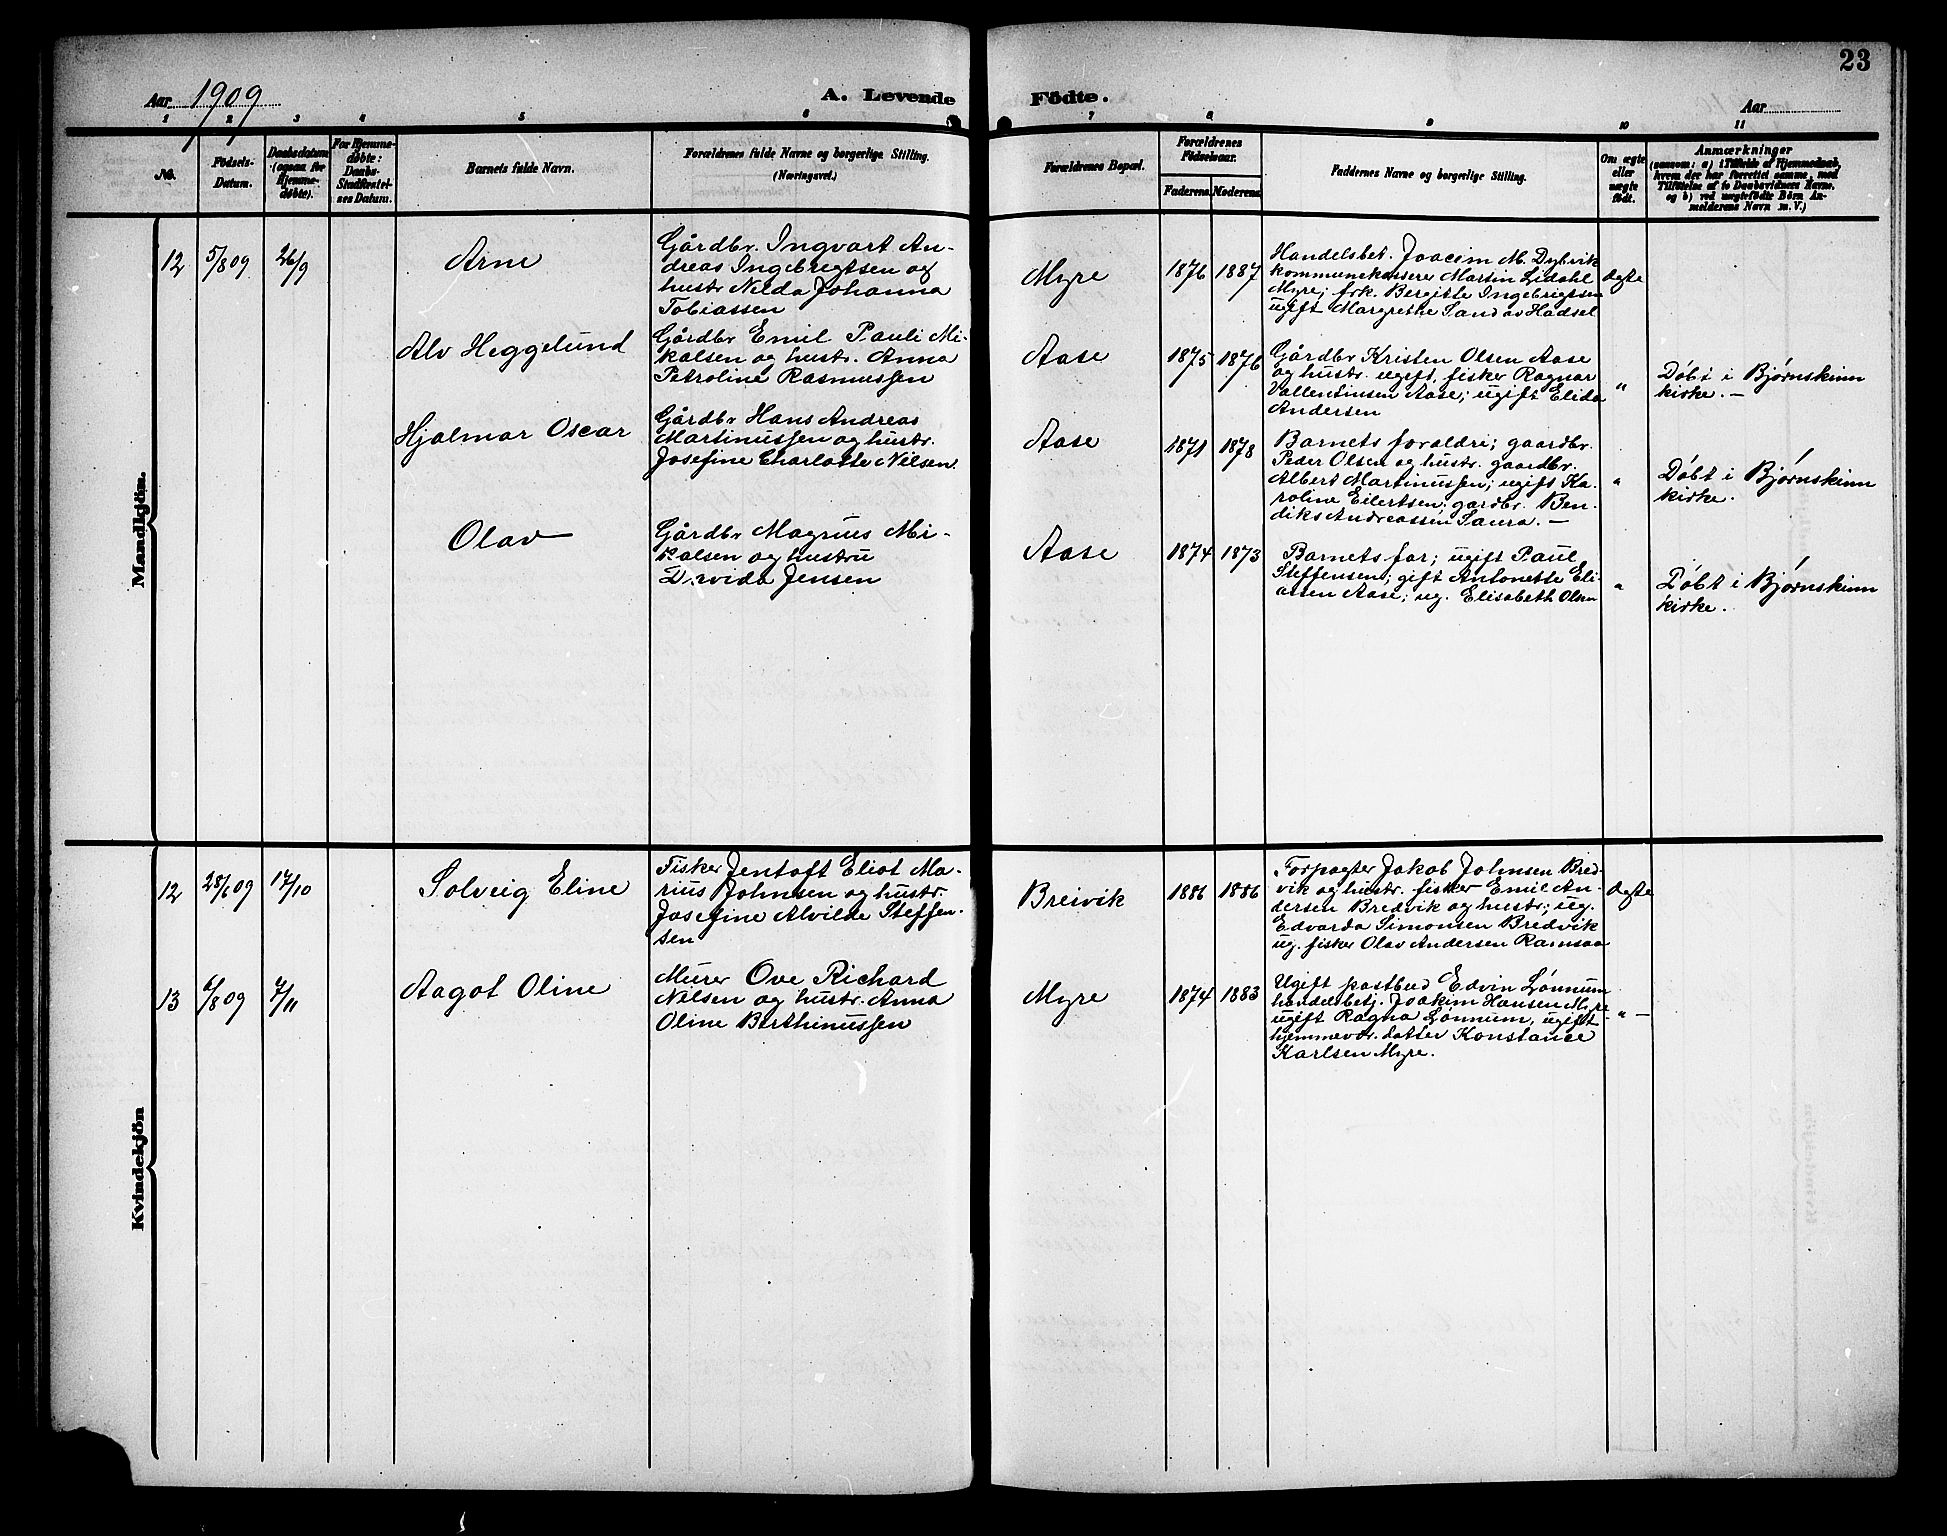 23
Aar 1909
A. Levende
Födte.
Aar
1 2 3 4 5 6 7 8 9 10 11
No.
Födsels-
Datum.
Daabsdatum
(ogsaa for
Hjemme-
døbte).
For Hjemme-
døbte:
Daabs-
Stadfæstel-
ses Datum.
Barnets fulde Navn.
Forældrenes fulde Navne og borgerlige Stilling.
(Næringsvei.)
Forældrenes Bopæl.
Forældrenes
Födselsaar.
Faderens
Moderens
Faddernes Navne og borgerlige Stilling.
Om ægte
eller
uægte
födt.
Anmærkninger
(saasom: a) i Tilfælde af Hjemmedaab,
hvem der har forrettet samme, med
Tilföielse af to Daabsvidners Navne,
og b) ved uægtefödte Börn An-
melderens Navn m. V.)
Mandkjön.
12
5/8 09
26/9
Arne
Gårdbr. Ingvart An-
dreas Ingebrigtsen og
hustr Nilda Johanna
Tobiassen
Myre
1876
1887
Handelsbet. Joacim M. Dybvik
kommunekasserer Martin Lidahl
Myre; frk. Bergitte Ingebrigtsen
ugift Margrethe Sand av Hadsel
ægte
Alv Heggelund
Gårdbr Emil Pauli Mi-
kalsen og hustr. Anna
Petroline Rasmussen
Aase
1875
1876
Gårdbr Kristen Olsen Aase
og hustr. ugift. fisker Ragnar
Vallentinsen Aase; ugift Elida
Andersen
"
Døbt i Bjørnskinn
kirke. —
Hjalmar Oscar
Gårdbr Hans Andreas
Martinussen og hustr.
Josefine Charlotte Nilsen
Aase
1871
1878
Barnets foraldre; gaardbr.
Peder Olsen og hustr. gaardbr.
Albert Martinussen; ugift Ka-
roline Eilertsen; gardbr. Ben-
diks Andreassen Saura. —
"
Døbt i Bjørnskinn
kirke.
Olav
Gårdbr Magnus Mi-
kalsen og hustru
Dorvida Jensen
Aase
1874
1873
Barnets far; ugift Paul
Steffensen; gift Antonette Eli-
assen Aase; ug. Elisabeth Olsen
"
Døbt i Bjørnskinn
kirke.
Kvindekjön
12
28/6 09
17/10
Solveig Eline
Fisker Jentoft Eliot Ma-
rius Johnsen og hustr.
Josefine Alvilde Steffen-
sen
Breivik
1886
1886
Forpagter Jakob Johnsen Bred-
vik og hustr. fisker Emil An-
dersen Bredvik og hustr; ug.
Edvarda Simonsen Bredvik
ug. fisker Olav Andersen Ramsaa
ægte
13
6/8 09
7/11
Aagot Oline
Murer Ove Richard
Nilsen og hustr. Anna
Oline Berthinussen
Myre
1874
1883
Ugift postbud Edvin Lønnum
handelsbetj. Joakim Hansen Myre
ugift Ragna Lønnum, ugift
hjemmevær. datter Konstance
Karlsen Myre.
- " -